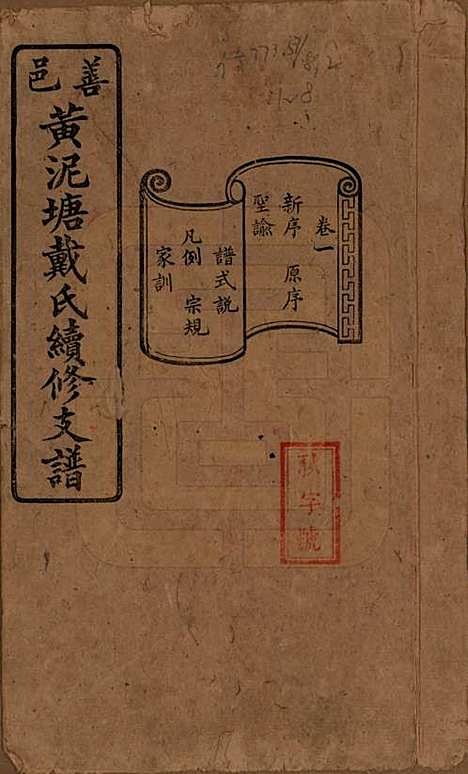 善邑
黃泥塘戴氏續修支譜
卷一
新序 原序
聖諭
譜式說
凡例 宗規
家訓
字號